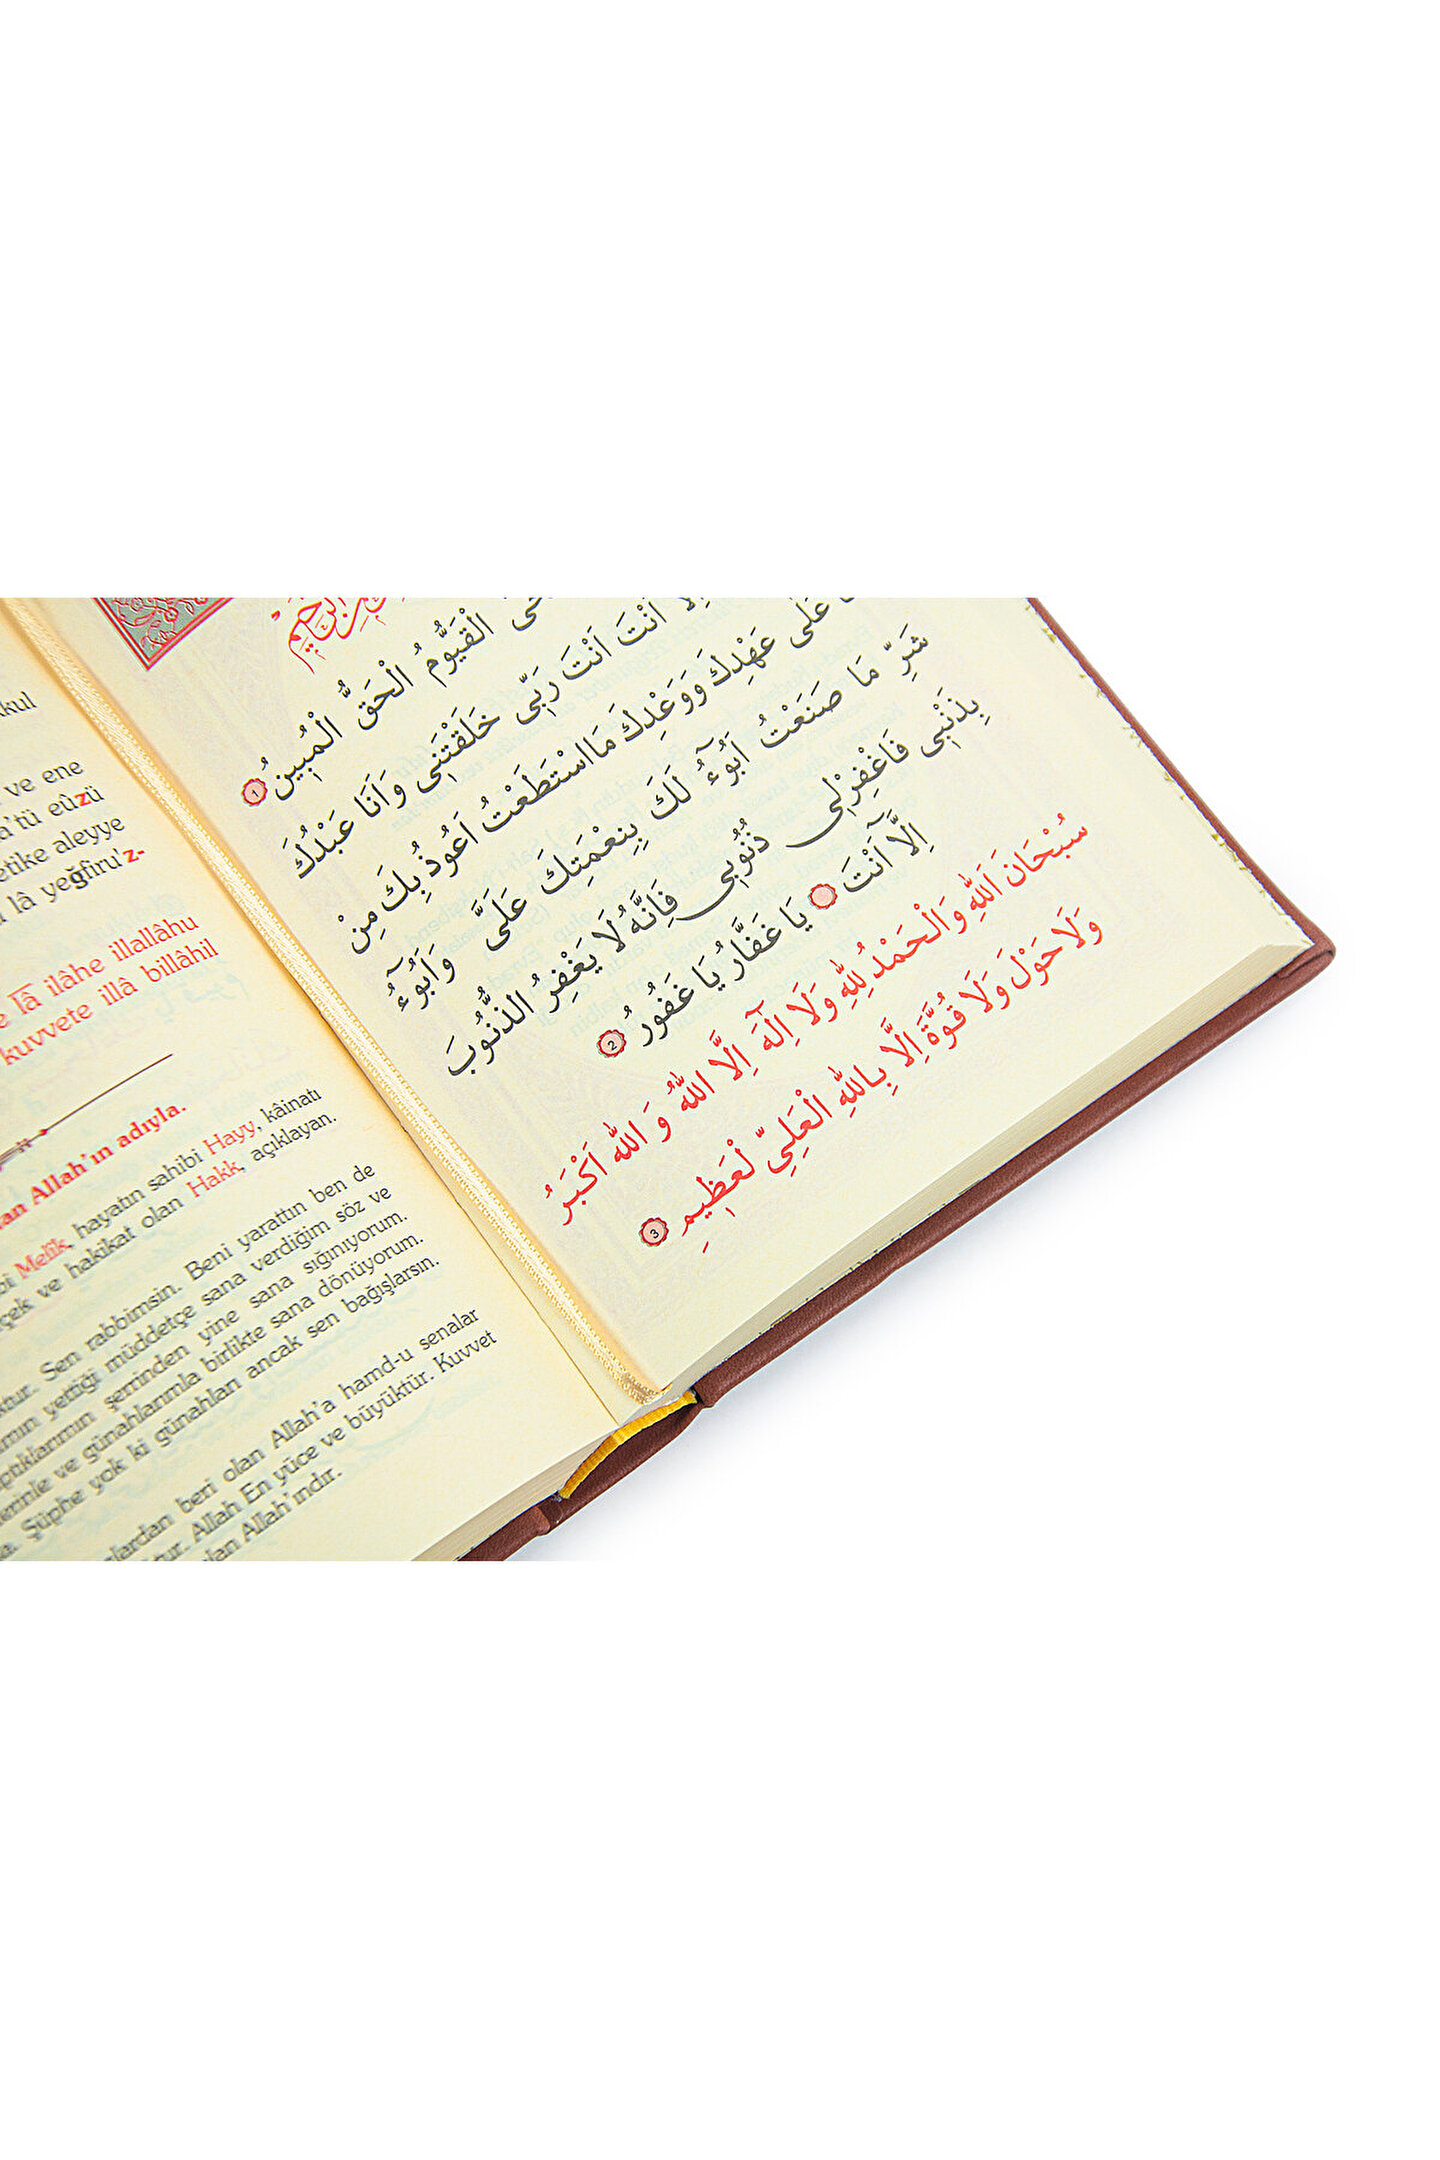 kkul
ve ene
a'tü eûzü
etike aleyye
lâ yeğfiru'z-
e lâ ilâhe illallâhu
kuvvete illâ billâhil
an Allah'ın adıyla.
bi Melîk, hayatın sahibi Hayy, kâinatı
çek ve hakikat olan Hakk, açıklayan.
ktur. Sen rabbimsin. Beni yarattın ben de
yettiği müddetçe sana verdiğim söz ve
ptıklarımın şerrinden yine sana sığınıyorum.
lerinle ve günahlarımla birlikte sana dönüyorum.
Şüphe yok ki günahları ancak sen bağışlarsın.
lardan beri olan Allah'a hamd-u senalar
tur. Allah En yüce ve büyüktür. Kuvvet
olan Allah'ındır.
الْقَيُّومُ الْحَقُّ الْمُبِينُ 1
اِلَّا اَنْتَ اَنْتَ رَبِّى خَلَقْتَنِى وَاَنَا عَبْدُكَ
عَلَى عَهْدِكَ وَوَعْدِكَ مَا اسْتَطَعْتُ اَعُوذُ بِكَ مِنْ
شَرِّ مَا صَنَعْتُ اَبُوٓءُ لَكَ بِنِعْمَتِكَ عَلَىَّ وَاَبُوٓءُ
بِذَنْبِى فَاغْفِرْلِى ذُنُوبِى فَاِنَّهُ لَا يَغْفِرُ الذُّنُوبَ
اِلَّٓا اَنْتَ يَا غَفَّارُ يَا غَفُورُ 2
سُبْحَانَ اَللهِ وَالْحَمْدُ لِلهِ وَلَا اِلٰهَ اِلَّا اللهُ وَ اللهُ اَكْبَرُ
وَلَا حَوْلَ وَلَا قُوَّةَ اِلَّا بِاللهِ الْعَلِيِّ لْعَظِيمِ 3